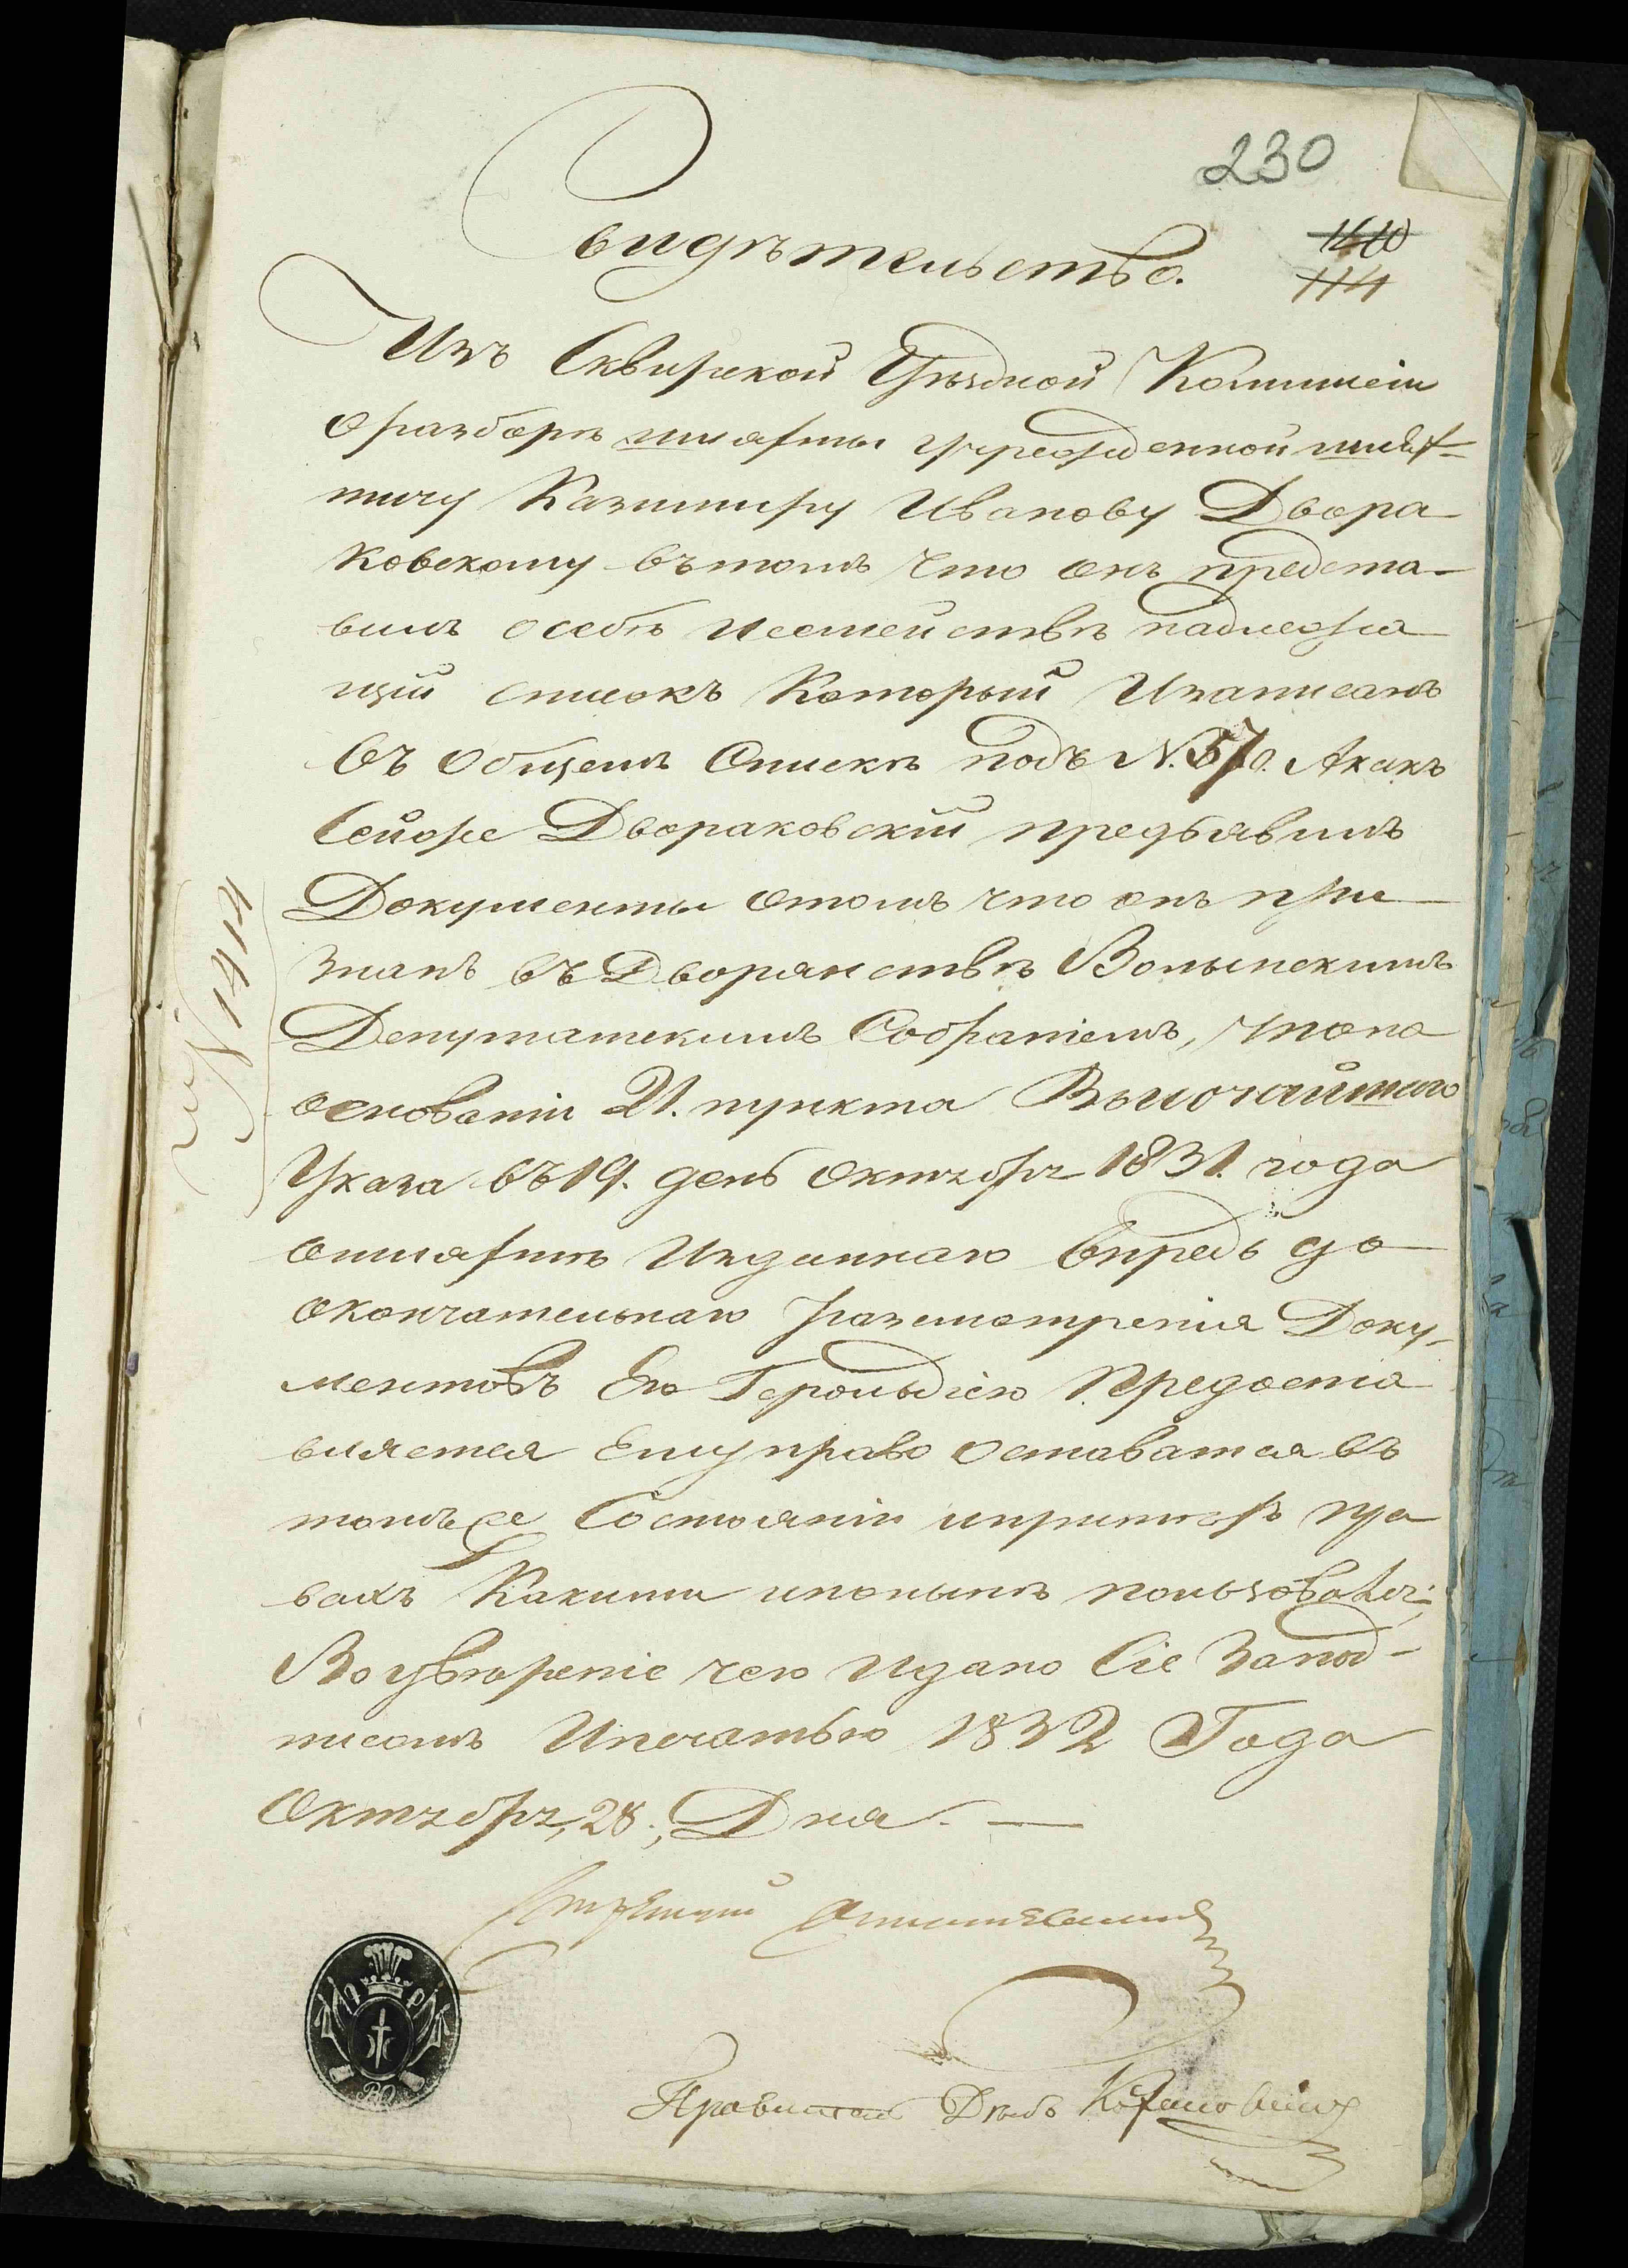 230
Свидѣтельство.
1610
114
Изъ Сквирской Уѣздной Коммисіи
о разборѣ шляхты учрежденной шлях-
тичу Казимиру Иванову Двора
ковскому въ томъ что онъ предста-
вилъ о себѣ и семействѣ надлежа
щій списокъ который и записанъ
въ общемъ Спискѣ подъ N. 570. А какъ
Сей оже Двораковскій предъявилъ
Документы о томъ что онъ при-
знанъ въ Дворянствѣ Волынскимъ
Депутатскимъ Собраніемъ, то на
основаніи 21. пункта Высочайшаго
Указа въ 19. день Октября 1831. года
о шляхтѣ Изданнаго впредь до
окончательнаго разсмотренія Доку-
ментовъ Его Герольдіею Предоста
вляется Ему право оставатся въ
томъ же Состояніи и при тѣхъ пра
вахъ Какими и понынѣ пользовался;
Во увѣреніе чего Издано Сіе За под-
писомъ И печатью 1832 Года
Октября, 28., Дня. —
N 1414
Правитель Дѣлъ